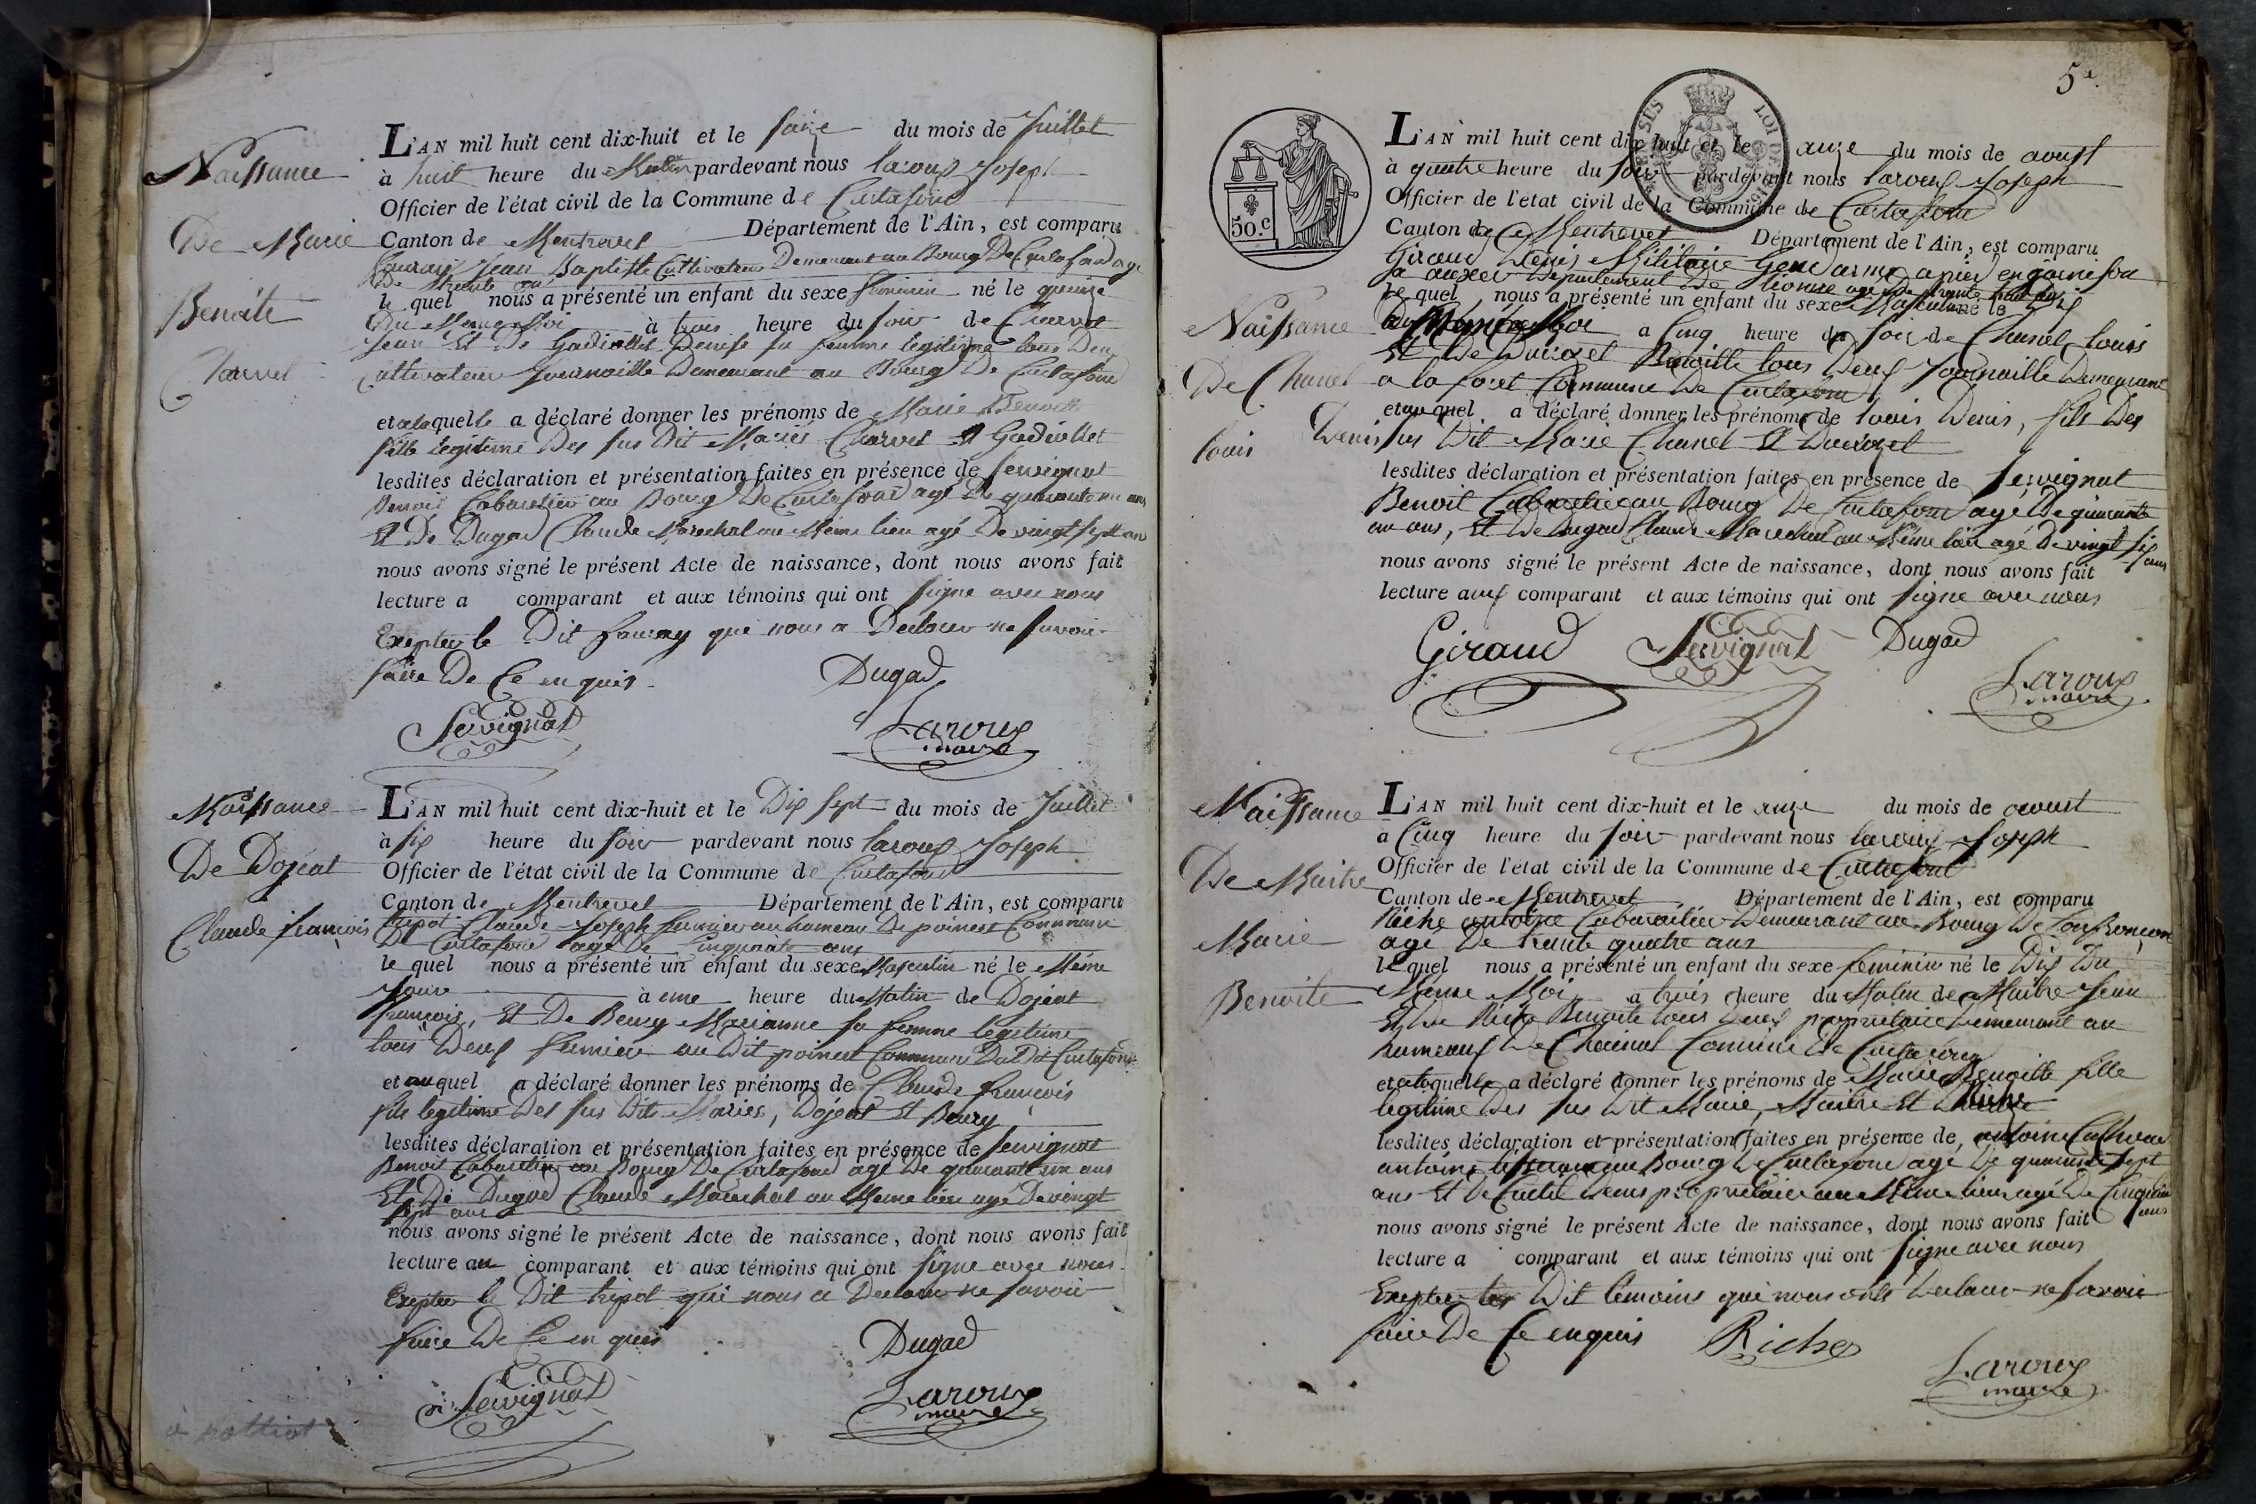 Naissance
De Marie
Benoite
Charvet
L'AN mil huit cent dix-huit et le saize du mois de Juillet
à huit heure du Matin pardevant nous laroux Joseph
Officier de l'état civil de la Commune de Curtafond
Canton de Mentrevel Département de l'Ain, est comparu
Jean Baptiste Cultivateur Demeurant au Bourg De Curtafond agé
De trente
le quel nous a présenté un enfant du sexe feminin né le quinze
Du Meme Moi à trois heure du soir de Charvet
Jean Et De Gadiollet Denise sa femme legitime tous Deux
Cultivateur Journaille Demeurant au Bourg De Curtafond
et alaquelle a déclaré donner les prénoms de Marie Benoitte
fille legitime Des sus Dit Mariés Charvet Et Gadiollet
lesdites déclaration et présentation faites en présence de servignat
Benoit Cabaretier au Bourg De Curtafond agé De quarante un ans
Et De Dugad Claude Marechal au Meme lieu agé De vingt sept ans
nous avons signé le présent Acte de naissance, dont nous avons fait
lecture a comparant et aux témoins qui ont signe avec nous
Exeptez le Dit qui nous a Declarer ne savoir
faire De Ce enquis
Dugad
Servignat
Laroux
maire
Naissance
De Dojeat
Claude françois
L'AN mil huit cent dix-huit et le Dix sept du mois de Juillet
à six heure du soir pardevant nous laroux Joseph
Officier de l'état civil de la Commune de Curtafond
Canton de Mentrevel Département de l'Ain, est comparu
tripot Claude Joseph fermier au hameau De poinest Commune
De Curtafond agé De Cinquante ans
le quel nous a présenté un enfant du sexe Masculin né le Méme
Jour à une heure du Matin de Dojeat
françois, Et De Beury Marianne sa femme legitime
tous Deux fermier au Dit poinest Commune Du Dit Curtafond
et auquel a déclaré donner les prénoms de Claude françois
fils legitime Des sus Dits Mariés, Dojeat Et Beury
lesdites déclaration et présentation faites en présence de servignat
Benoit Cabaretier au Bourg De Curtafond agé De quarante un ans
Et De Dugad Claude Marechal au Meme lieu agé De vingt
sept ans
nous avons signé le présent Acte de naissance, dont nous avons fait
lecture au comparant et aux témoins qui ont signe avec nous
Exeptez le Dit tripot qui nous a Declarer ne savoir
faire De Ce enquis
Dugad
Servignat
Laroux
maire
5e
50.c
LOI DE
Naissance
De Chanel
louis Denis
L'AN mil huit cent dix huit et le onze du mois de aoust
à quatre heure du soir pardevant nous laroux Joseph
Officier de l'état civil de la Commune de Curtafond
Canton de Mentrevel Département de l'Ain, est comparu
Giraud Denis Militaire Gendarme a pied en garnison
a auxer Departement De lionne agé De trente huit ans
le quel nous a présenté un enfant du sexe Masculin né le
à Cinq heure du soir de Chanel louis
Et De Benoitte tous Deux Journaille Demeurant
a la foret Commune De Curtafond
et auquel a déclaré donner les prénoms de louis Denis, fils Des
sus Dit Marie Chanel Et
lesdites déclaration et présentation faites en présence de servignat
Benoit Cabaretier au Bourg De Curtafond agé De quarante
un ans, Et De Dugad Claude Marechal au Même lieu agé De vingt six
ans
nous avons signé le présent Acte de naissance, dont nous avons fait
lecture aux comparant et aux témoins qui ont signe avec nous
Giraud Servignat Dugad
Laroux
maire
Naissance
De Maitre
Marie
Benoite
L'AN mil huit cent dix-huit et le onze du mois de aoust
à Cinq heure du soir pardevant nous laroux Joseph
Officier de l'état civil de la Commune de Curtafond
Canton de Mentrevel Département de l'Ain, est comparu
Riche antoine Cabaretier Demeurant au Bourg De Confrançon
age De trente quatre ans
le quel nous a présenté un enfant du sexe feminin né le Dix Du
Meme Moi à trois heure du Matin de Maitre Jean
Et De Riche Benoite tous Deux proprietaire Demeurant au
hameaux De Commune De Curtafond
et alaquelle a déclaré donner les prénoms de Marie Benoitte fille
legitime Des sus Dit Marie, Maitre Et Riche
lesdites déclaration et présentation faites en présence de
antoine au Bourg De Curtafond agé De quarante sept
ans Et De Curtil Denis proprietaire au Même lieu agé De Cinquante
ans
nous avons signé le présent Acte de naissance, dont nous avons fait
lecture a comparant et aux témoins qui ont signe avec nous
Exeptez les Dit temoins qui nous onts Declarer ne savoir
faire De Ce enquis Riche
Laroux
maire